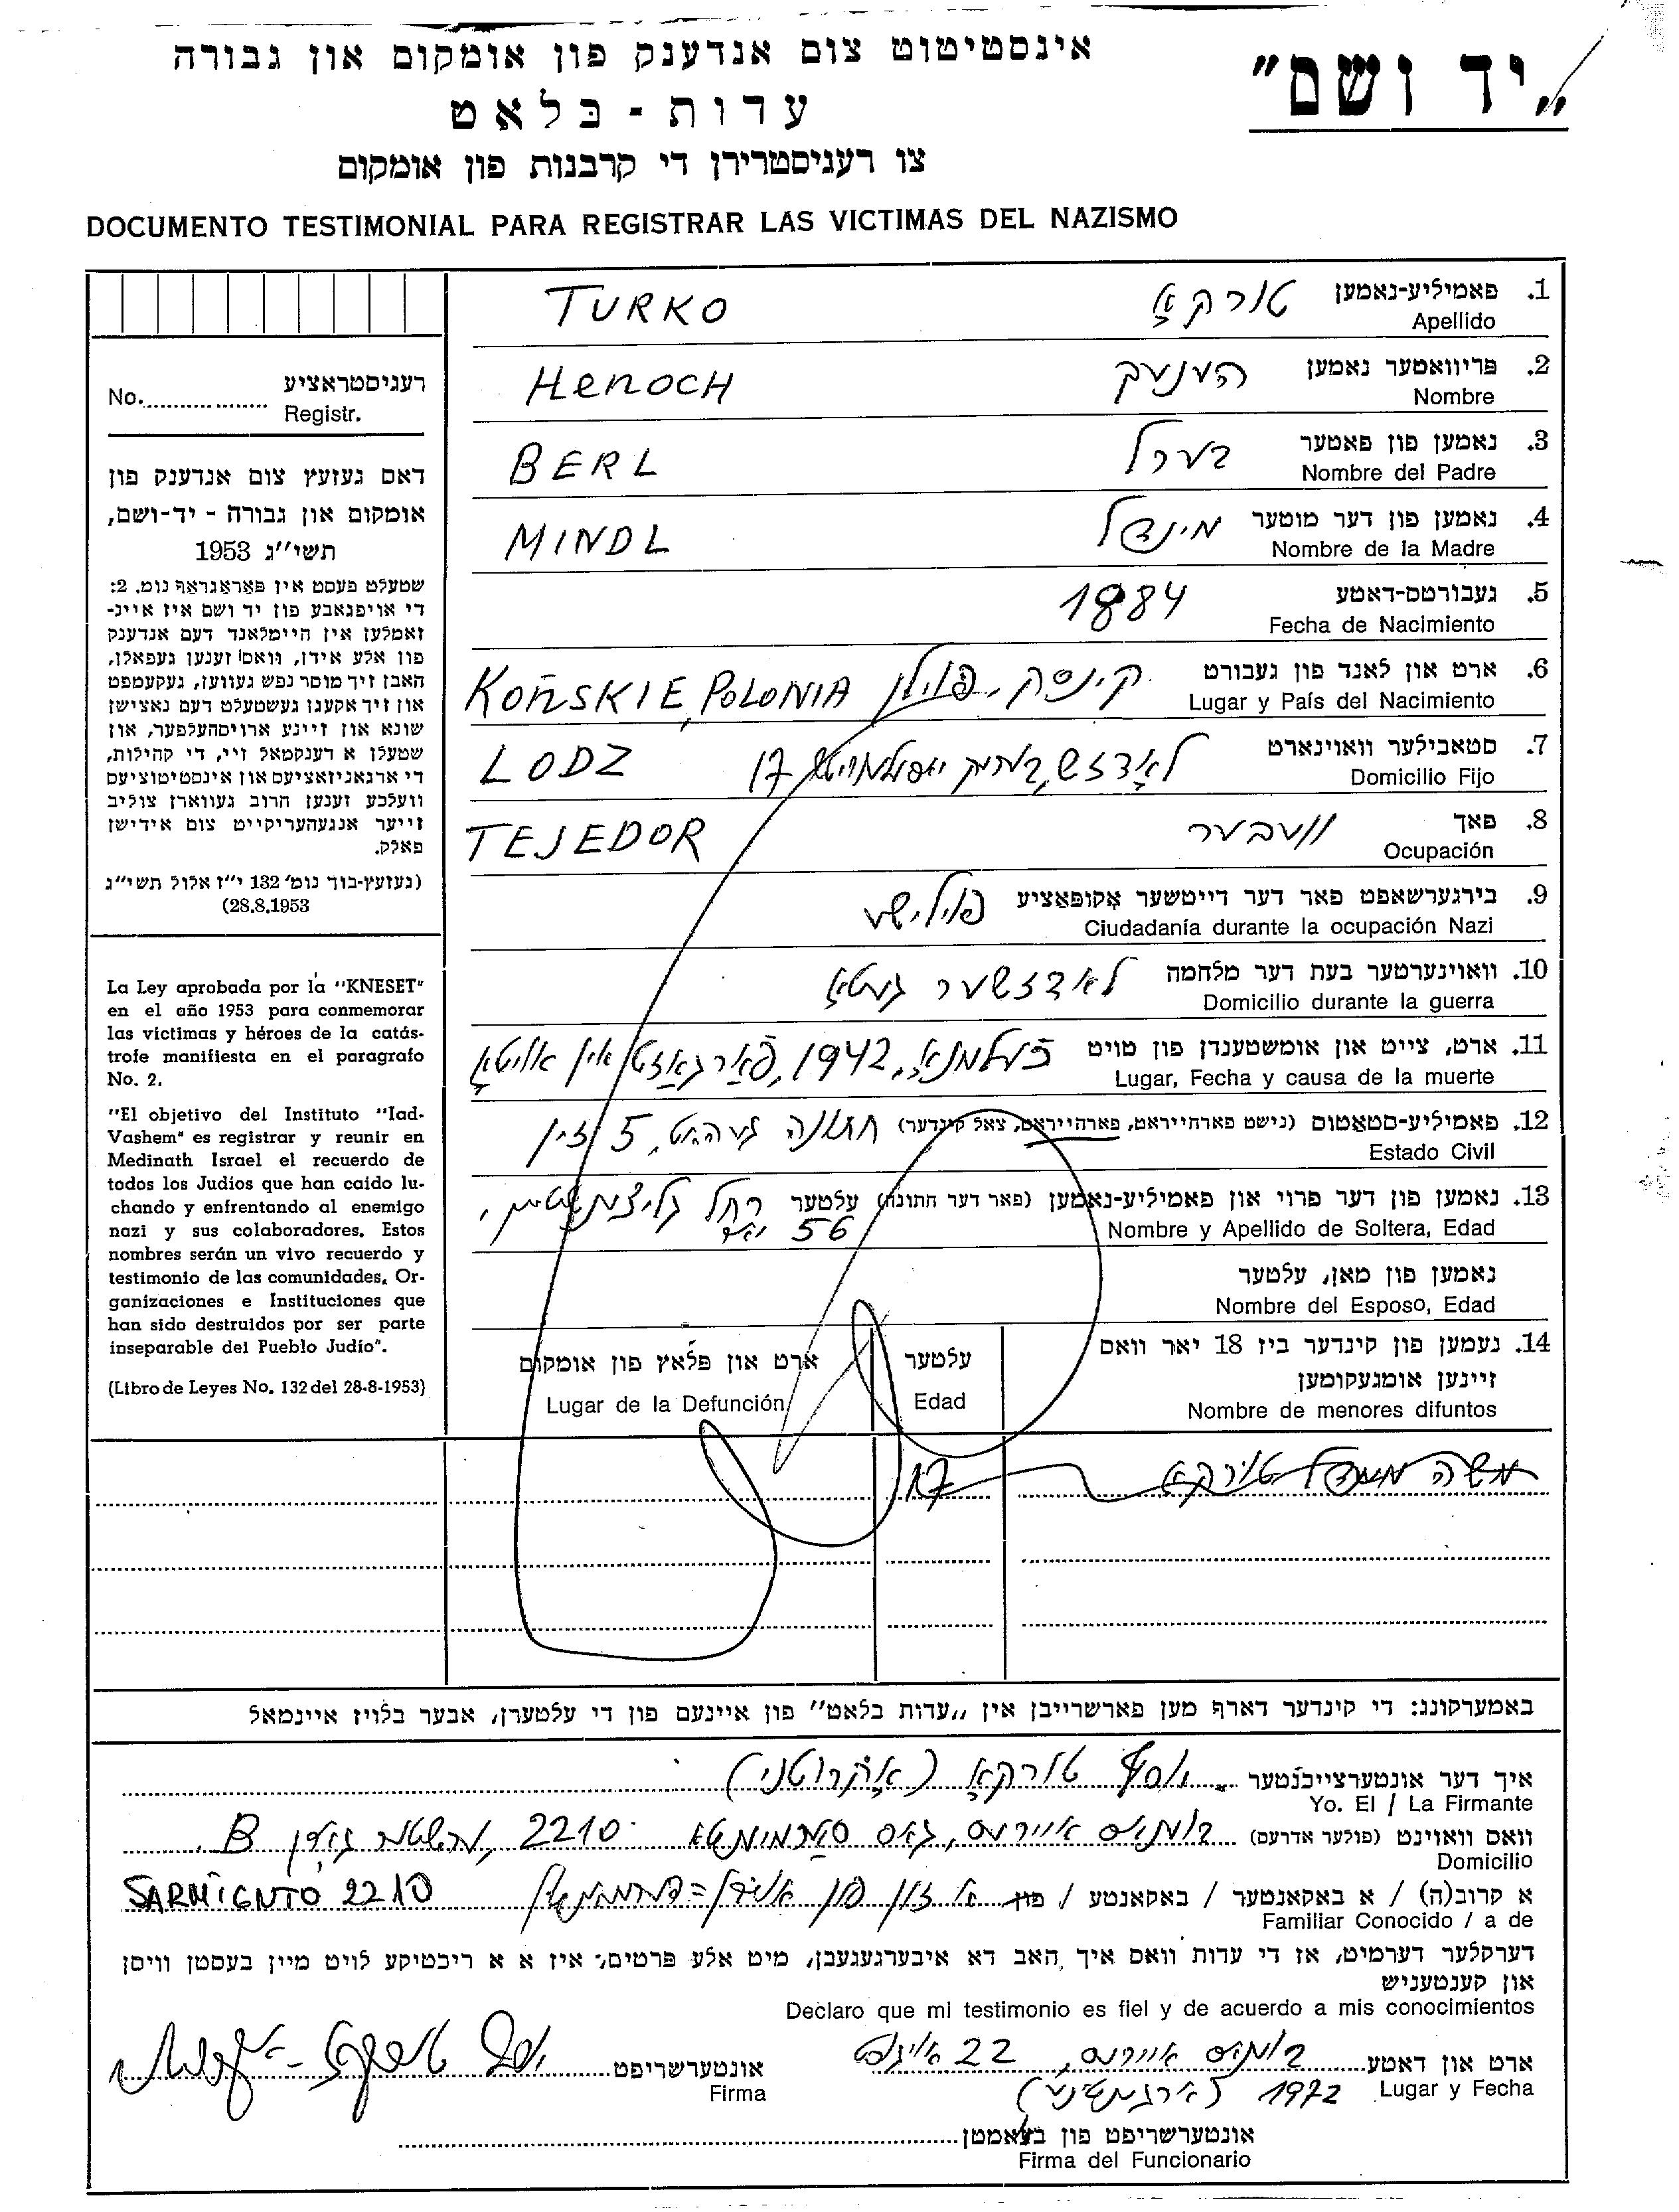 „יד ושם"
אינסטיטוט צום אנדענק פון אומקום און גבורה
עדות - בלאט
צו רעגיסטרירן די קרבנות פון אומקום
DOCUMENTO TESTIMONIAL PARA REGISTRAR LAS VICTIMAS DEL NAZISMO
רעגיסטראציע
No. Registr.
דאס געזעץ צום אנדענק פון
אומקום און גבורה - יד-ושם,
תשי"ג 1953
שטעלט פעסט אין פאראגראף נומ. 2:
די אויפגאבע פון יד ושם איז איינ-
זאמלען אין היימלאנד דעם אנדענק
פון אלע אידן, וואס זענען געפאלן,
האבן זיך מוסר נפש געווען, געקעמפט
און זיך אקעגן געשטעלט דעם נאצישן
שונא און זיינע ארויסהעלפער, און
שטעלן א דענקמאל זיי, די קהילות,
די ארגאניזאציעס און אינסטיטוציעס
וועלכע זענען חרוב געווארן צוליב
זייער אנגעהעריקייט צום אידישן
פאלק.
(געזעץ-בוך נומ' 132 י"ז אלול תשי"ג
28.8.1953)
La Ley aprobada por la "KNESET"
en el año 1953 para conmemorar
las víctimas y héroes de la catás-
trofe manifiesta en el paragrafo
No. 2.
"El objetivo del Instituto "Iad-
Vashem" es registrar y reunir en
Medinath Israel el recuerdo de
todos los Judíos que han caído lu-
chando y enfrentando al enemigo
nazi y sus colaboradores. Estos
nombres serán un vivo recuerdo y
testimonio de las comunidades, Or-
ganizaciones e Instituciones que
han sido destruidos por ser parte
inseparable del Pueblo Judío".
(Libro de Leyes No. 132 del 28-8-1953)
1. פאמיליע-נאמען טורקא TURKO
Apellido
2. פריוואטער נאמען הענעך HENOCH
Nombre
3. נאמען פון פאטער בערל BERL
Nombre del Padre
4. נאמען פון דער מוטער מינדל MINDL
Nombre de la Madre
5. געבורטס-דאטע 1884
Fecha de Nacimiento
6. ארט און לאנד פון געבורט קינסק, פוילן KOŃSKIE, POLONIA
Lugar y País del Nacimiento
7. סטאבילער וואוינארט לאדזש, 17 LODZ
Domicilio Fijo
8. פאך וועבער TEJEDOR
Ocupación
9. בירגערשאפט פאר דער דייטשער אקופאציע פוילישע
Ciudadanía durante la ocupación Nazi
10. וואוינערטער בעת דער מלחמה לאדזשער געטא
Domicilio durante la guerra
11. ארט, צייט און אומשטענדן פון טויט כעלמנא, 1942, פארגאזט אין אויטא
Lugar, Fecha y causa de la muerte
12. פאמיליע-סטאטוס (נישט פארהייראט, פארהייראט, צאל קינדער) חתונה געהאט, 5 זין
Estado Civil
13. נאמען פון דער פרוי און פאמיליע-נאמען (פאר דער חתונה) עלטער רחל גליצנשטיין,
56 יאר
Nombre y Apellido de Soltera, Edad
נאמען פון מאן, עלטער
Nombre del Esposo, Edad
14. נעמען פון קינדער ביז 18 יאר וואס עלטער ארט און פלאץ פון אומקום
זיינען אומגעקומען
Nombre de menores difuntos Edad Lugar de la Defunción
משה מענדל טורקא 17
באמערקונג: די קינדער דארף מען פארשרייבן אין „עדות בלאט" פון איינעם פון די עלטערן, אבער בלויז איינמאל
איך דער אונטערצייכנטער יוסף טורקא (אקרוטני)
Yo. El / La Firmante
וואס וואוינט (פולער אדרעס) בוענאס איירעס, גאס סארמיענטא 2210, B
Domicilio
א קרוב(ה) / א באקאנטער / באקאנטע / פון א זון פון SARMIENTO 2210
Familiar Conocido / a de
דערקלער דערמיט, אז די עדות וואס איך האב דא איבערגעגעבן, מיט אלע פרטים, איז א א ריכטיקע לויט מיין בעסטן וויסן
און קענטעניש
Declaro que mi testimonio es fiel y de acuerdo a mis conocimientos
ארט און דאטע בוענאס איירעס, 22 אויגוסט
Lugar y Fecha 1972 (ארגענטינע)
אונטערשריפט יוסף טורקא
Firma
אונטערשריפט פון באאמטן
Firma del Funcionario